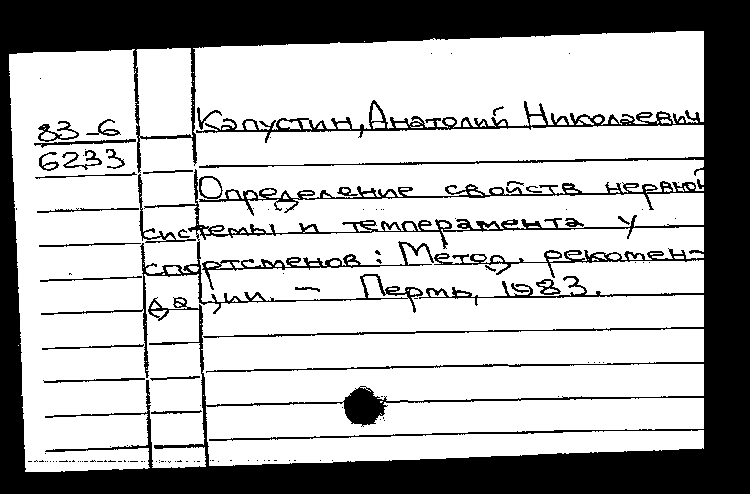 83-6
6233
Капустин, Анатолий Николаевич
Определение свойств нервной
системы и темперамента у
спортсменов: Метод. рекомен-
дации. - Пермь, 1983.